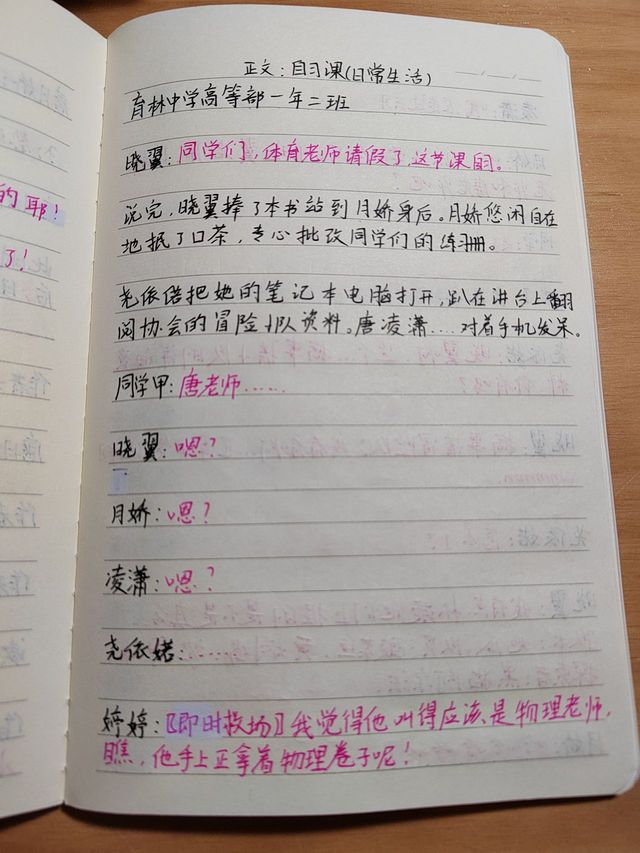 的耶！
了！
正文：自习课(日常生活)
育林中学高等部一年二班
晓翼：同学们，体育老师请假了，这节课自习。
说完，晓翼捧了本书站到月娇身后。月娇悠闲自在
地抿了口茶，专心批改同学们的练习册。
尧依偌把她的笔记本电脑打开，趴在讲台上翻
阅协会的冒险小队资料。唐凌潇....对着手机发呆。
同学甲：唐老师......
晓翼：嗯？
月娇：嗯？
凌潇：嗯？
尧依婼：......
婷婷：〖即时救场〗我觉得他叫得应该是物理老师，
瞧，他手上正拿着物理卷子呢！